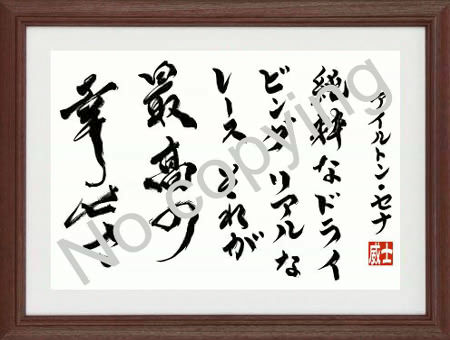 アイルトン・セナ
純粋なドライ
ビング リアルな
レース これが
最高の
幸せさ
威士
No Copying